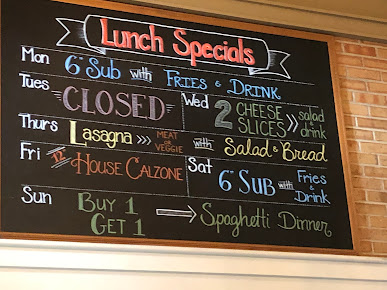 Lunch Specials
Mon 6" Sub with FRIES & DRINK
Tues CLOSED
Wed 2 CHEESE SLICES >> salad & drink
Thurs Lasagna >>> MEAT OR VEGGIE with Salad & Bread
Fri 12" HOUSE CALZONE
Sat 6" SUB with Fries & Drink
Sun BUY 1 GET 1 → Spaghetti Dinner